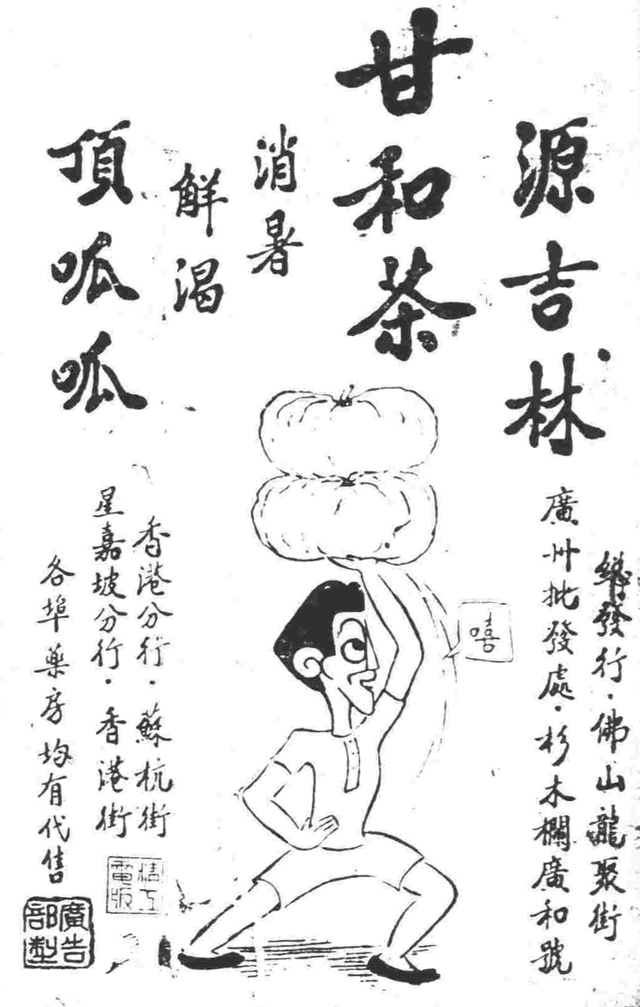 源吉林
甘和茶
消暑
解渴
頂呱呱
總發行·佛山龍聚街
廣州批發處·杉木欄廣和號
嘻
香港分行·蘇杭街
星嘉坡分行·香港街
各埠藥房均有代售
精工
電版
廣告
部製